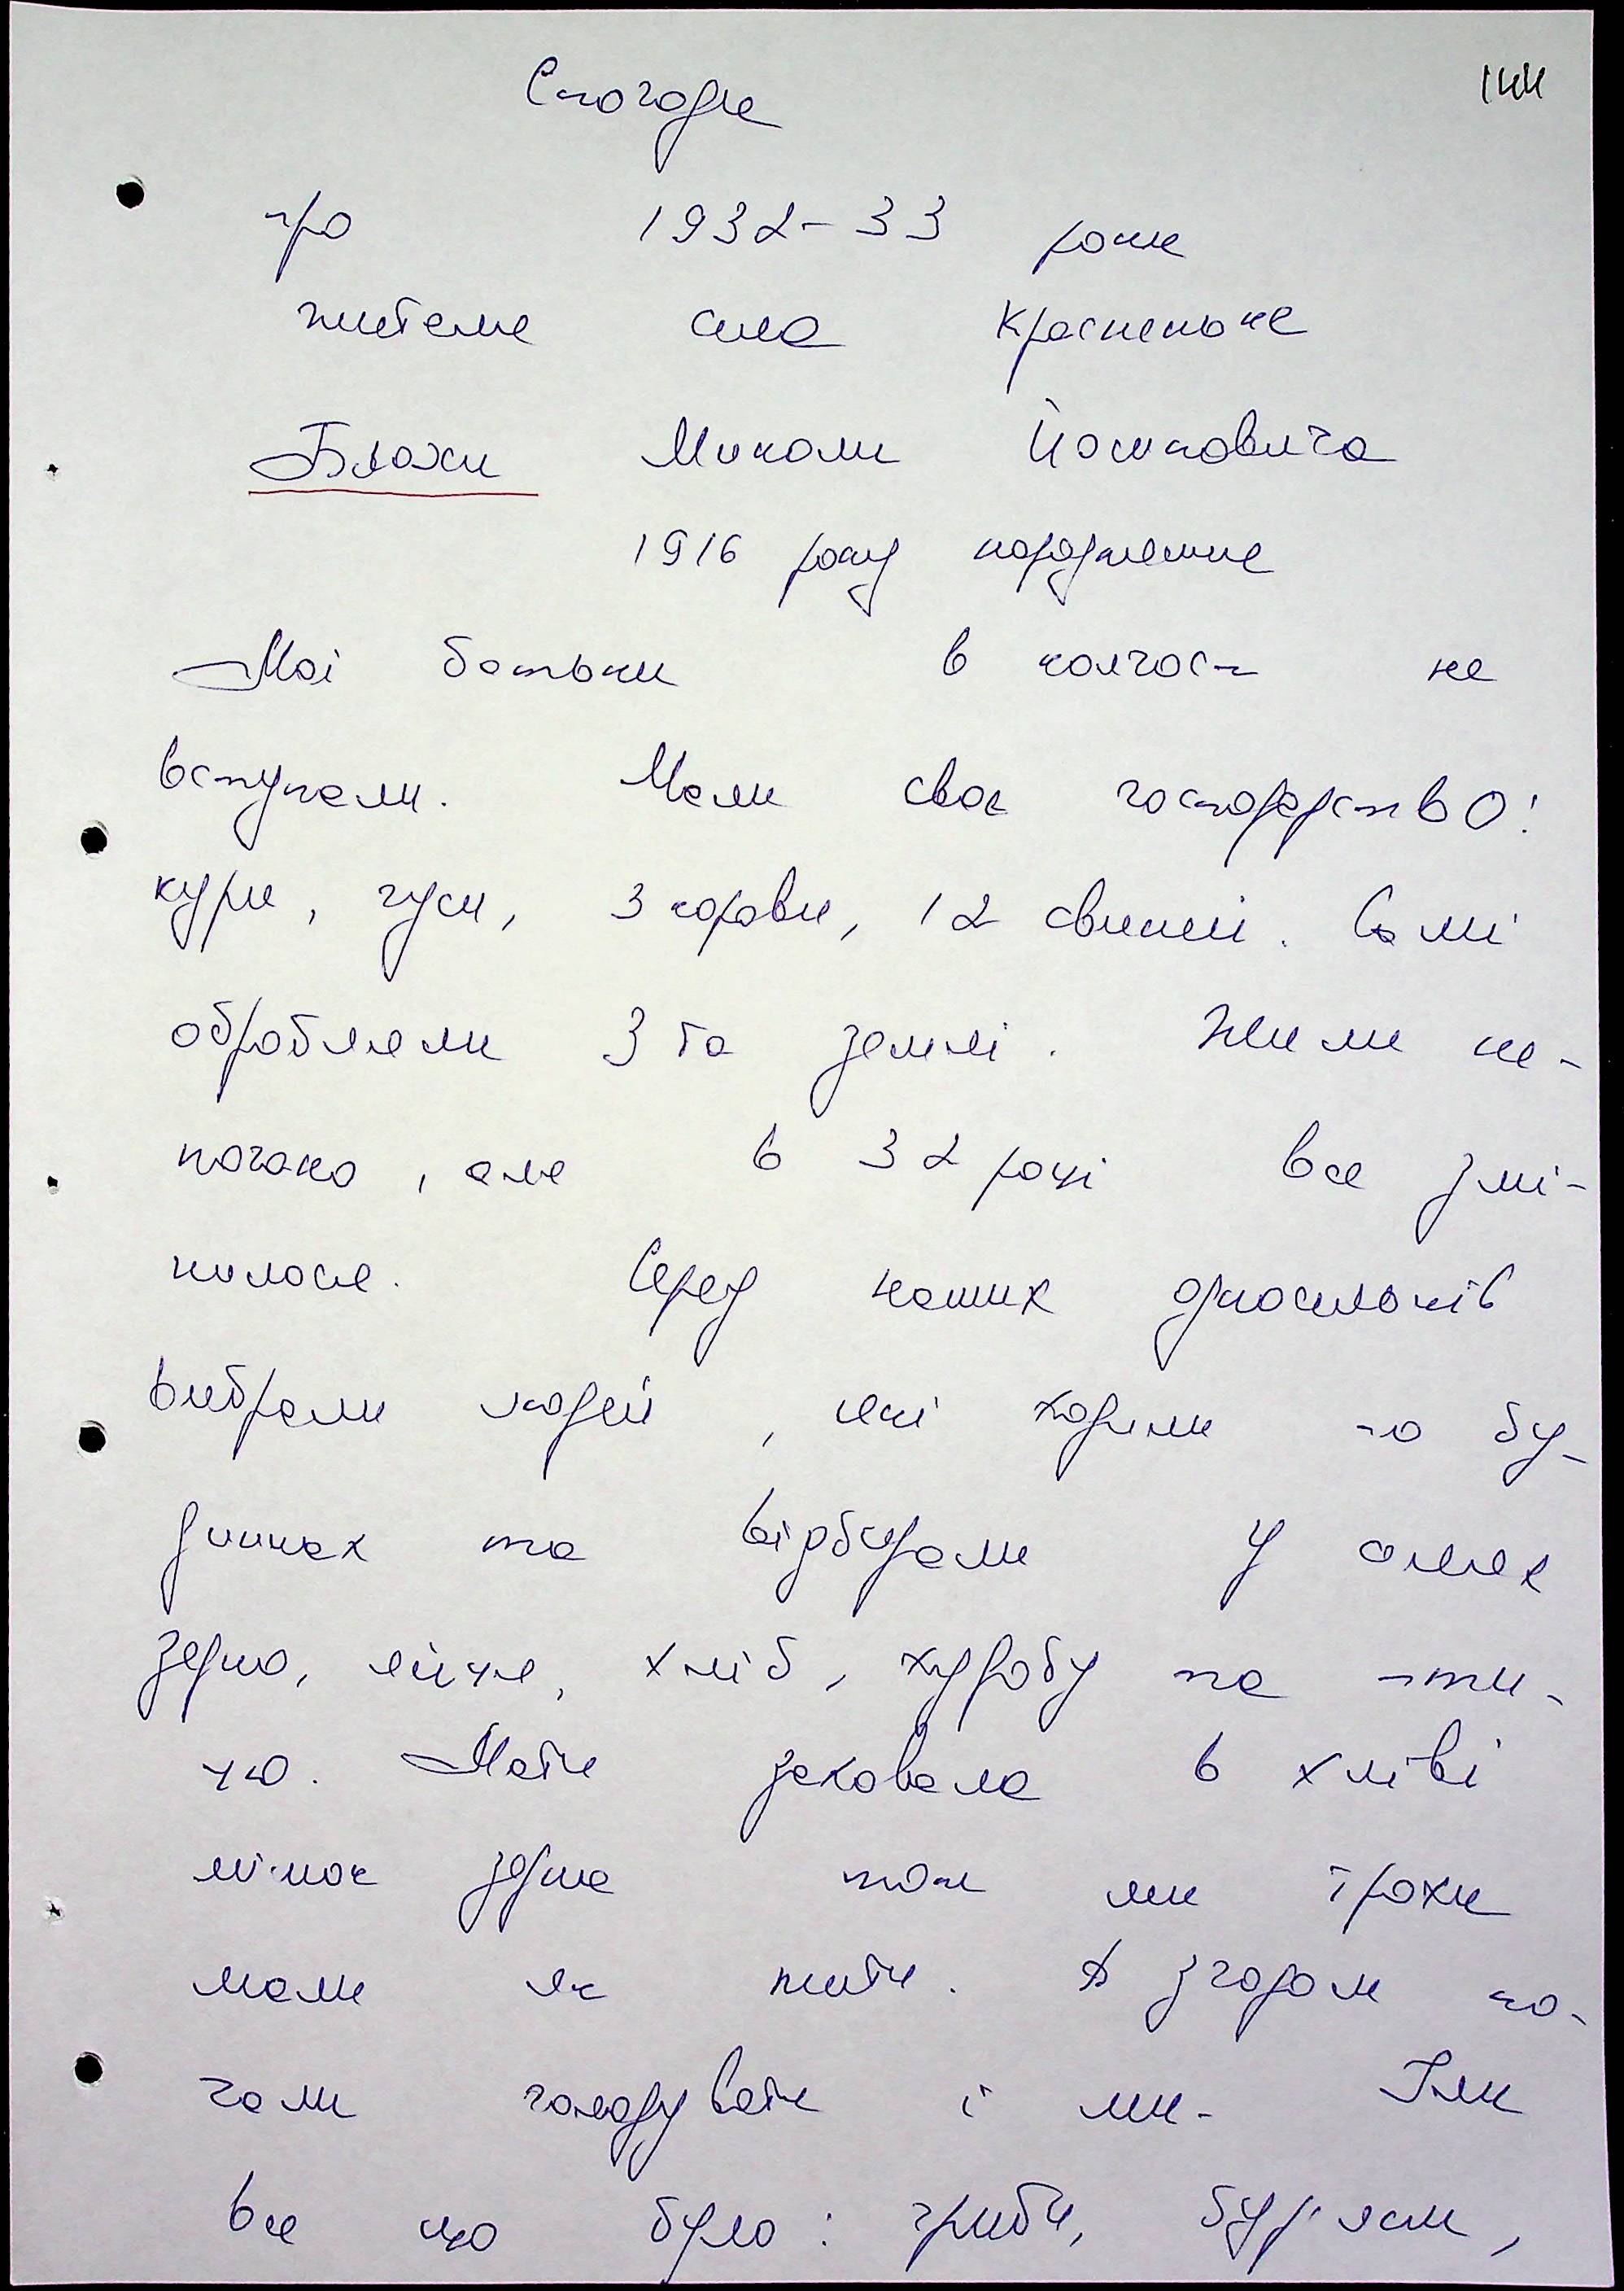 144
Спогади
про 1932-33 роки
жителя села Красненьке
Блохи Миколи Йосиповича
1916 року народження
Мої батьки в колгосп не
вступали. Мали своє господарство:
кури, гуси, 3 корови, 12 свиней. Самі
обробляли 3 га землі. Жили не-
погано, але в 32 році все змі-
нилося. Серед наших односельчан
вибрали людей, які ходили по бу-
динках та відбирали у селян
зерно, яйця, хліб, худобу та пти-
цю. Мати заховала в хліві
мішок зерна тож ми трохи
мали як жити. А згодом по-
чали голодувати і ми. Їли
все що було: гриби, бур'яни,